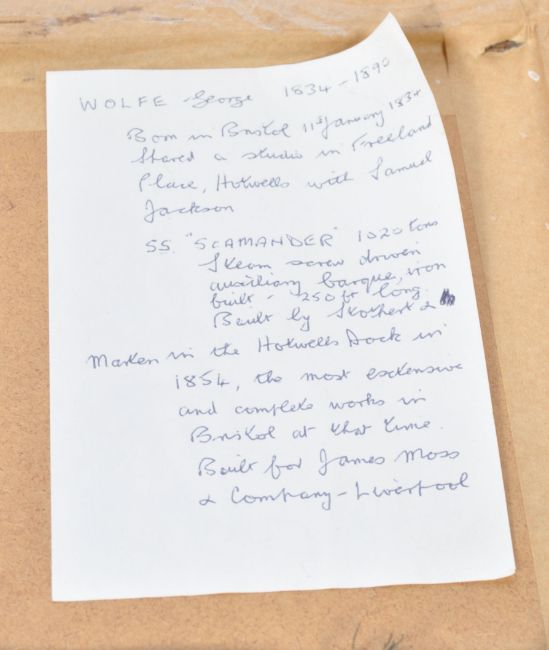 WOLFE George 1834-1890
Born in Bristol 11th January 1834
Shared a studio in Freeland
Place, Hotwells with Samuel
Jackson
SS. "SCAMANDER" 1020 tons
Steam screw driven
auxiliary barque, iron
built - 250 ft long.
Built by Stothert &
Marten in the Hotwells Dock in
1854, the most extensive
and complete works in
Bristol at that time.
Built for James Moss
& Company - Liverpool